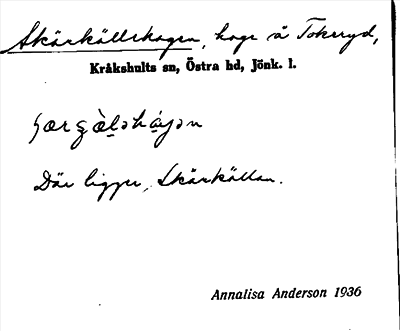 Skärkällshagen, hage å Tokeryd,
Kråkshults sn, Östra hd, Jönk. l.
Där ligger Skärkällan.
Annalisa Anderson 1936